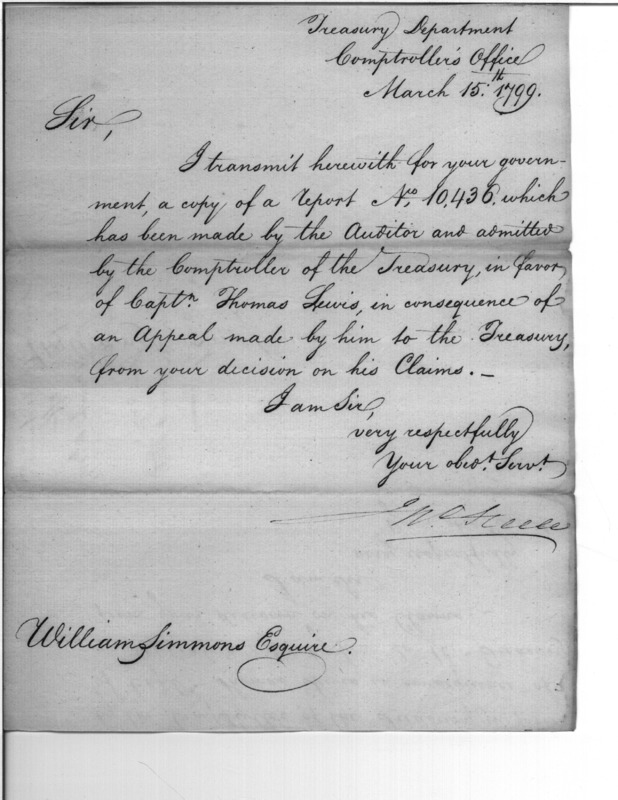 Treasury Department
Comptroller's Office
March 15.th 1799.
Sir,
I transmit herewith for your govern-
ment, a copy of a report No. 10,436. which
has been made by the Auditor and admitted
by the Comptroller of the Treasury, in favor
of Captn. Thomas Lewis, in consequence of
an Appeal made by him to the Treasury,
from your decision on his Claims. _
I am Sir,
very respectfully
Your obedt. Servt.
Jno. Steele
William Simmons Esquire.